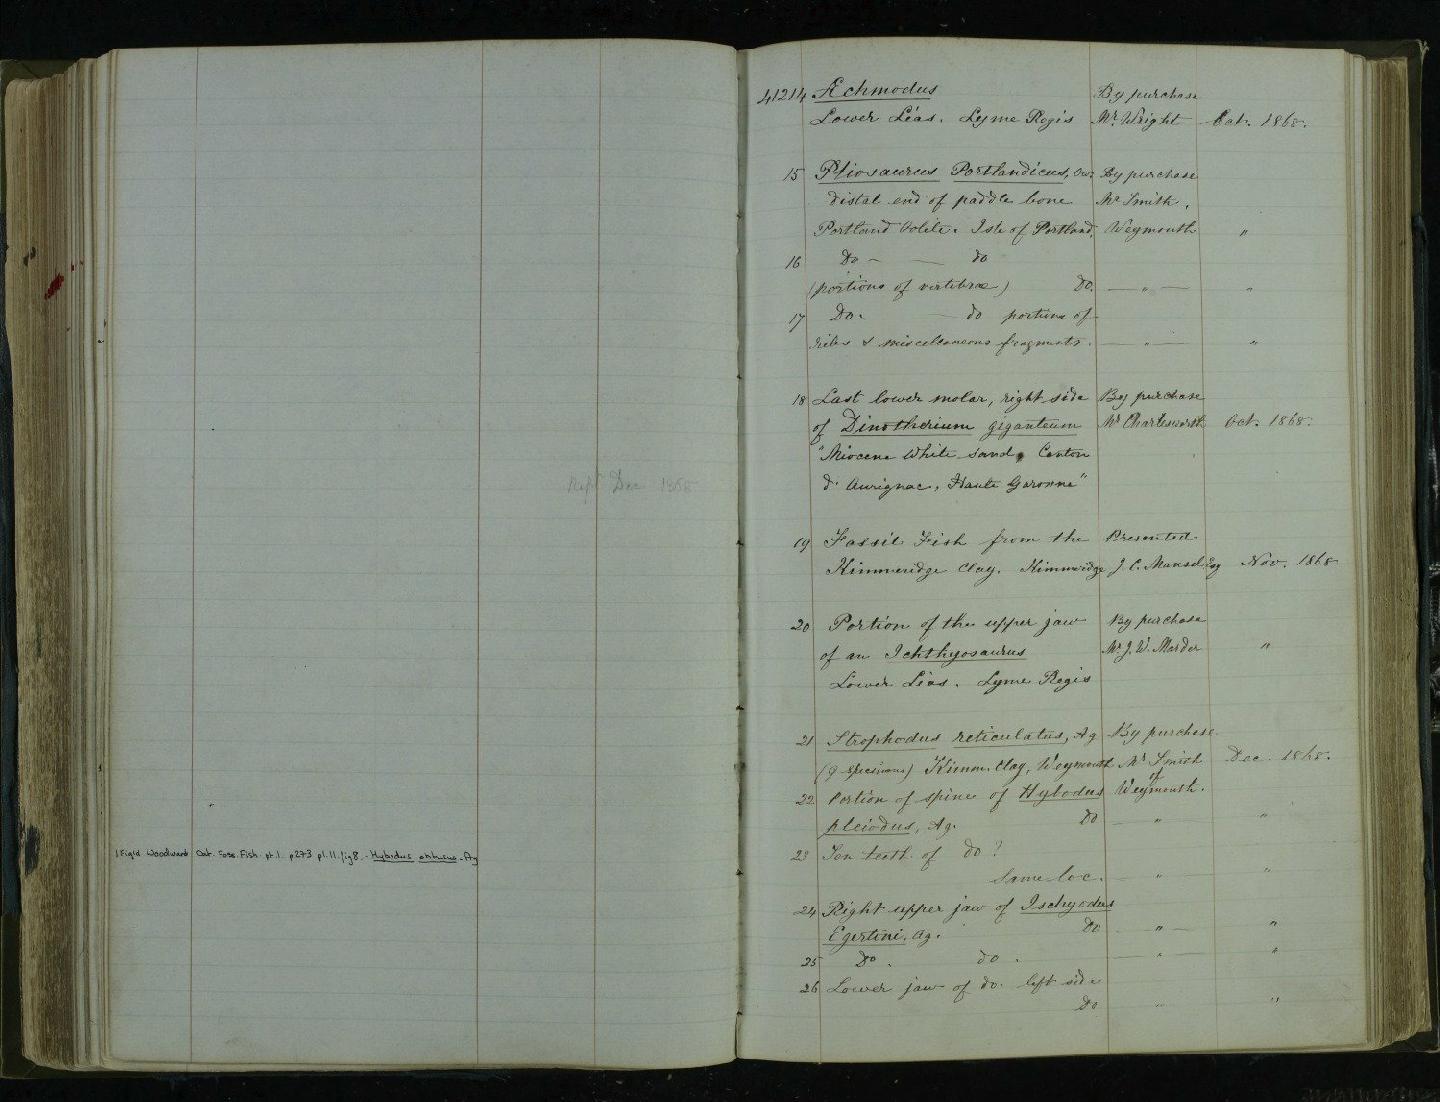 Rept Dec 1868
1 Figd Woodward Cat. Foss. Fish. pt. 1. p273 pl. 11. fig 8. - Hybodus obtusus - Ag
41214 Æchmodus By purchase
Lower Lias. Lyme Regis Mr. Wright Oct. 1868.
15 Pliosaurus Portlandicus, Ow. By purchase
distal end of paddle bone Mr Smith,
Portland Oolite. Isle of Portland. Weymouth "
16 Do - — do
(portions of vertebræ) do. — " — "
17 Do. — do portions of
ribs & miscellaneous fragments. — " — "
18 Last lower molar, right side By purchase
of Dinotherium giganteum Mr Charlesworth Oct. 1868.
"Miocene White sand, Canton
d' Aurignac, Haute Garonne"
19 Fossil Fish from the Presented
Kimmeridge Clay. Kimmeridge J. C. Mansel Esq Nov. 1868
20 Portion of the upper jaw By purchase
of an Ichthyosaurus Mr. J. W. Marder "
Lower Lias. Lyme Regis
21 Strophodus reticulatus, Ag By purchase.
(9 specimens) Kimm. Clay, Weymouth Mr Smith Dec. 1868.
of
22 Portion of spine of Hybodus Weymouth.
pleiodus, Ag. Do — " "
23 Ten teeth of do ?
Same loc. — " "
24 Right upper jaw of Ischyodus
Egertini. Ag. Do — " — "
25 Do. do. — " "
26 Lower jaw of do. left side
Do " "